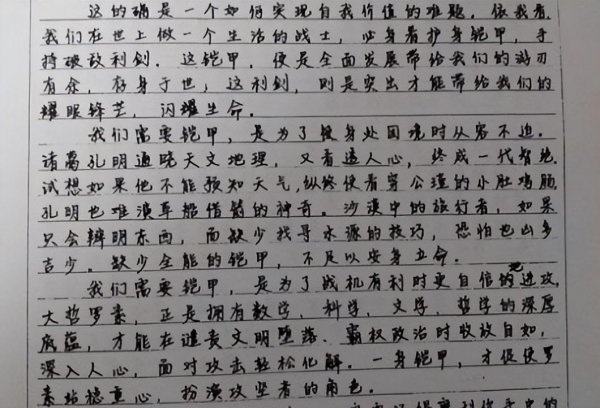 这的确是一个如何实现自我价值的难题。依我看,
我们在世上做一个生活的战士,必身着护身铠甲,手
持破敌利剑。这铠甲,便是全面发展带给我们的游刃
有余,存身于世,这利剑,则是突出才能带给我们的
耀眼锋芒,闪耀生命。
我们需要铠甲,是为了使身处困境时从容不迫。
诸葛孔明通晓天文地理,又看透人心,终成一代智绝,
试想如果他不能预知天气,纵终使看穿公瑾的小肚鸡肠,
孔明也难演草船借箭的神奇。沙漠中的旅行者,如果
只会辨明东西,而缺少找寻水源的技巧,恐怕也凶多
吉少。缺少全能的铠甲,不足以安身立命。
我们需要铠甲,是为了战机有利时更自信的进攻,
大哲罗素,正是拥有数学、科学、文学、哲学的深厚
底蕴,才能在谴责文明堕落、霸权政治时收放自如,
深入人心,面对攻击轻松化解。一身铠甲,才促使罗
素站稳重心,扮演攻坚者的角色。